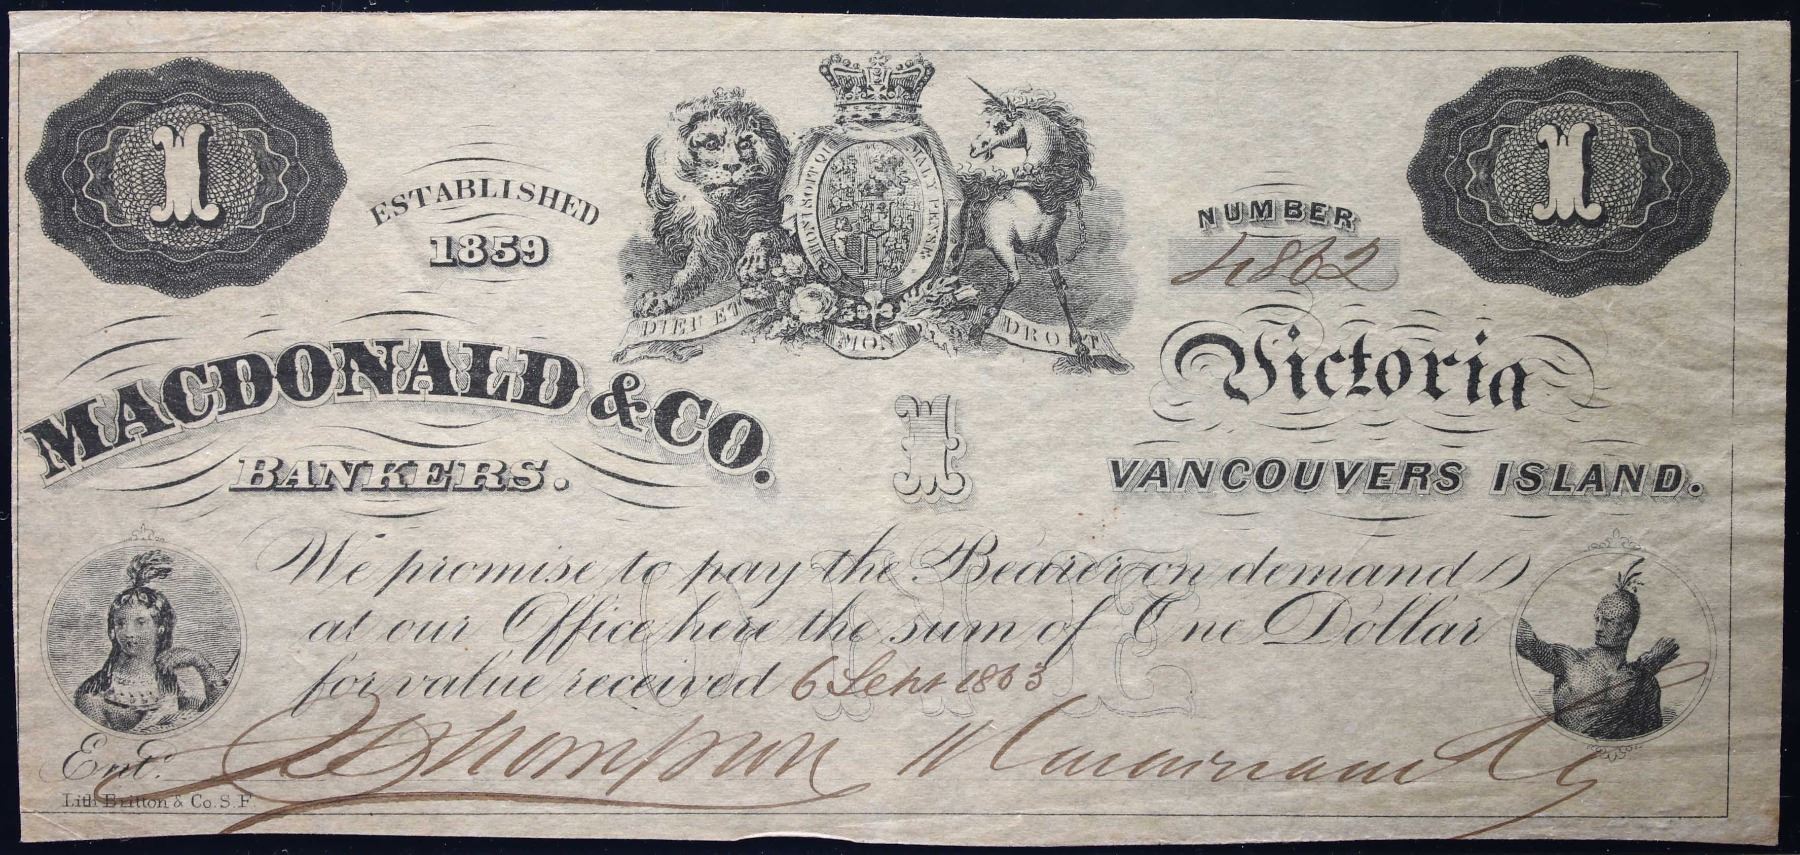 1
1
ESTABLISHED
1859
HONI SOIT QUI MAL Y PENSE
DIEU ET MON DROIT
NUMBER
4862
MACDONALD & CO.
BANKERS.
1
Victoria
VANCOUVERS ISLAND.
We promise to pay the Bearer on demand
at our Office here the sum of One Dollar
for value received 6 Sept 1863
ONE
Ent.d Thompson
Lith Britton & Co. S.F.